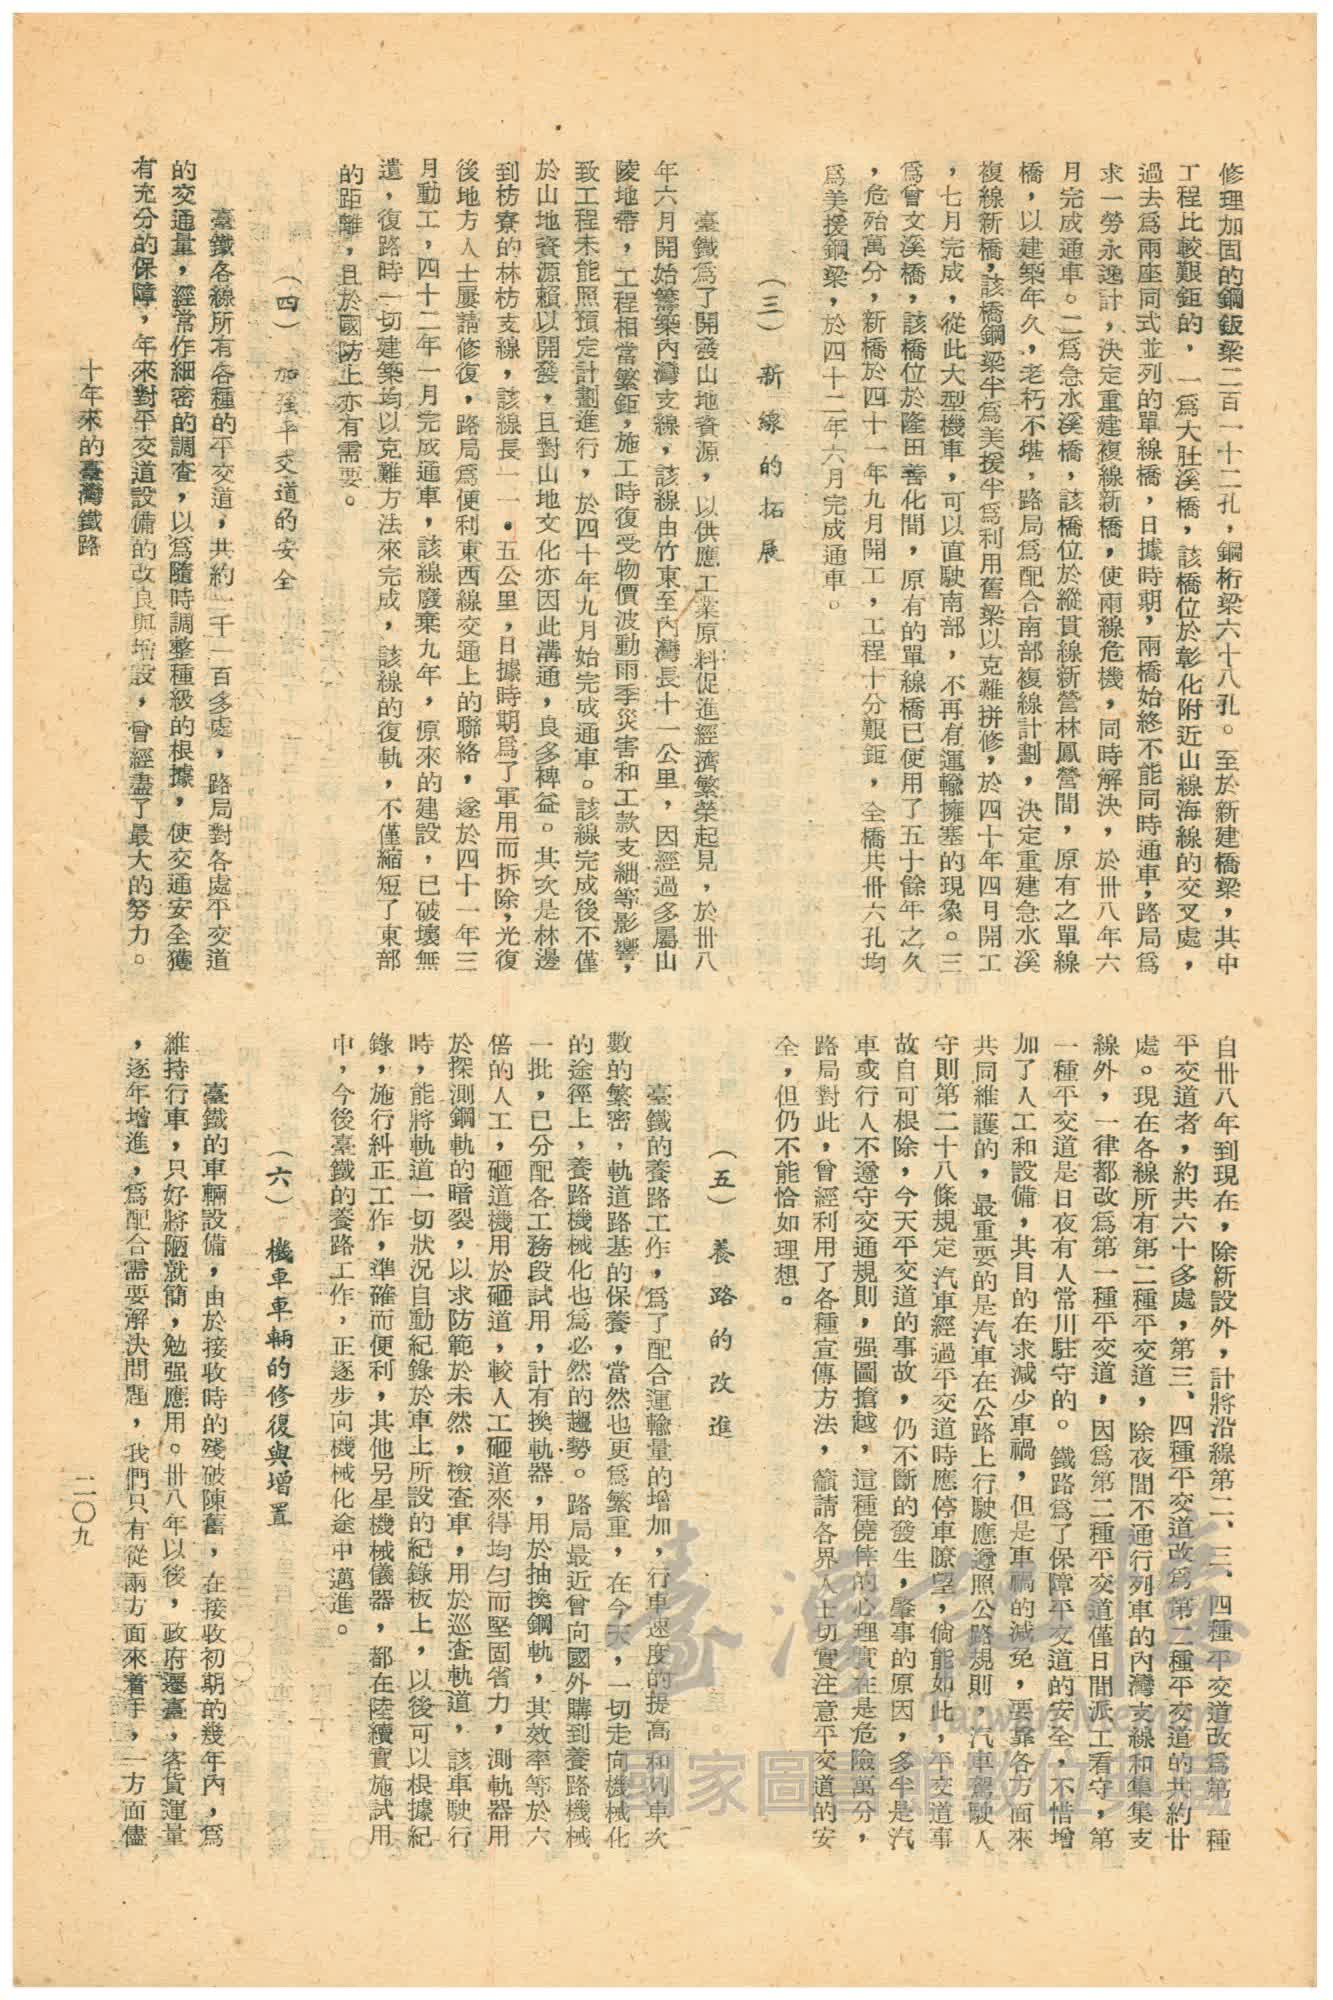 修理加固的鋼鈑梁二百一十二孔，鋼桁梁六十八孔。至於新建橋梁，其中
工程比較艱鉅的，一爲大肚溪橋，該橋位於彰化附近山線海線的交叉處，
過去爲兩座同式並列的單線橋，日據時期，兩橋始終不能同時通車，路局爲
求一勞永逸計，決定重建複線新橋，使兩線危機，同時解決，於卅八年六
月完成通車。二爲急水溪橋，該橋位於縱貫線新營林鳳營間，原有之單線
橋，以建築年久，老朽不堪，路局爲配合南部複線計劃，決定重建急水溪
複線新橋，該橋鋼梁半爲美援半爲利用舊梁以克難拼修，於四十年四月開工
，七月完成，從此大型機車，可以直駛南部，不再有運輸擁塞的現象。三
爲曾文溪橋，該橋位於隆田善化間，原有的單線橋已使用了五十餘年之久
，危殆萬分，新橋於四十一年九月開工，工程十分艱鉅，全橋共卅六孔均
爲美援鋼梁，於四十二年六月完成通車。
（三）新線的拓展
臺鐵爲了開發山地資源，以供應工業原料促進經濟繁榮起見，於卅八
年六月開始籌築內灣支線，該線由竹東至內灣長十一公里，因經過多屬山
陵地帶，工程相當繁鉅，施工時復受物價波動雨季災害和工款支絀等影響，
致工程未能照預定計劃進行，於四十年九月始完成通車。該線完成後不僅
於山地資源賴以開發，且對山地文化亦因此溝通，良多裨益。其次是林邊
到枋寮的林枋支線，該線長一一．五公里，日據時期爲了軍用而拆除，光復
後地方人士屢請修復，路局爲便利東西線交通上的聯絡，遂於四十一年三
月動工，四十二年一月完成通車，該線廢棄九年，原來的建設，已破壞無
遺，復路時一切建築均以克難方法來完成，該線的復軌，不僅縮短了東部
的距離，且於國防上亦有需要。
（四）加強平交道的安全
臺鐵各線所有各種的平交道，共約一千一百多處，路局對各處平交道
的交通量，經常作細密的調查，以爲隨時調整種級的根據，使交通安全獲
有充分的保障，年來對平交道設備的改良與增設，曾經盡了最大的努力。
自卅八年到現在，除新設外，計將沿線第二、三、四種平交道改爲第一種
平交道者，約共六十多處，第三、四種平交道改爲第二種平交道的共約廿
處。現在各線所有第二種平交道，除夜間不通行列車的內灣支線和集集支
線外，一律都改爲第一種平交道，因爲第二種平交道僅日間派工看守，第
一種平交道是日夜有人常川駐守的。鐵路爲了保障平交道的安全，不惜增
加了人工和設備，其目的在求減少車禍，但是車禍的減免，要靠各方面來
共同維護的，最重要的是汽車在公路上行駛應遵照公路規則，汽車駕駛人
守則第二十八條規定，汽車經過平交道時應停車瞭望，倘能如此，平交道事
故自可根除，今天平交道的事故，仍不斷的發生，肇事的原因，多半是汽
車或行人不遵守交通規則，强圖搶越，這種僥倖的心理實在是危險萬分，
路局對此，曾經利用了各種宣傳方法，籲請各界人士切實注意平交道的安
全，但仍不能恰如理想。
（五）養路的改進
臺鐵的養路工作，爲了配合運輸量的增加，行車速度的提高和列車次
數的繁密，軌道路基的保養，當然也更爲繁重，在今天，一切走向機械化
的途徑上，養路機械化也爲必然的趨勢。路局最近曾向國外購到養路機械
一批，已分配各工務段試用，計有換軌器，用於抽換鋼軌，其效率等於六
倍的人工，砸道機用於砸道，較人工砸道來得均勻而堅固省力，測軌器用
於探測鋼軌的暗裂，以求防範於未然，檢查車，用於巡查軌道，該車駛行
時，能將軌道一切狀況自動紀錄於車上所設的紀錄板上，以後可以根據紀
錄，施行糾正工作，準確而便利，其他另星機械儀器，都在陸續實施試用
中，今後臺鐵的養路工作，正逐步向機械化途中邁進。
（六）機車車輛的修復與增置
臺鐵的車輛設備，由於接收時的殘破陳舊，在接收初期的幾年內，爲
維持行車，只好將陋就簡，勉强應用。卅八年以後，政府遷臺，客貨運量
，逐年增進，爲配合需要解決問題，我們只有從兩方面來着手，一方面儘
十年來的臺灣鐵路
二〇九
臺灣記憶
Taiwan Memory
國家圖書館數位典藏